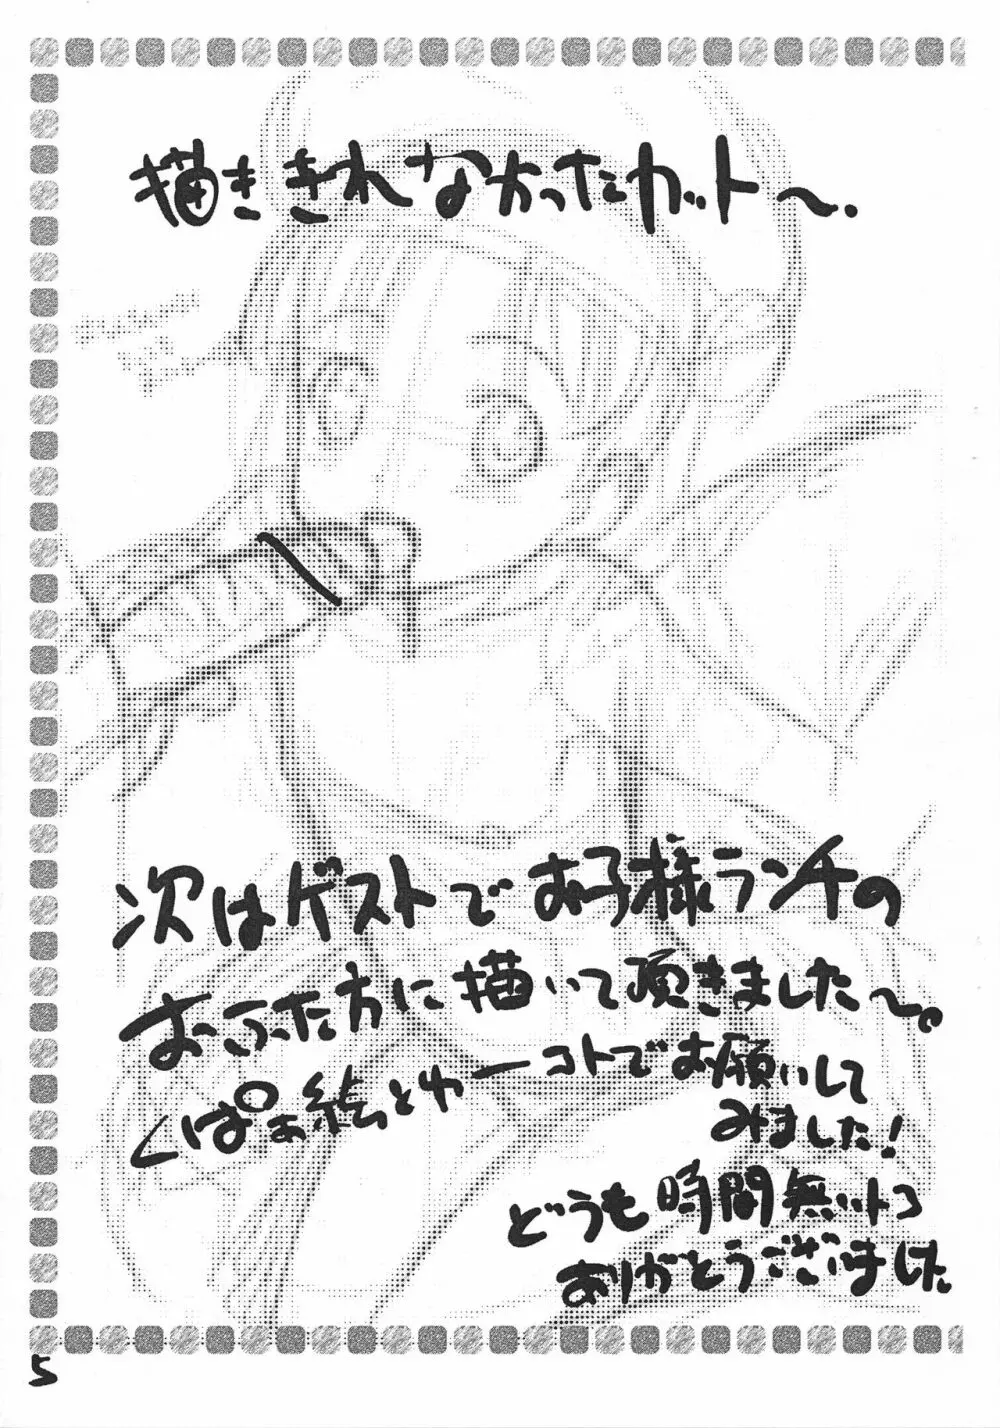 描ききれなかったカット〜.
次はゲストでお子様ランチの
おふた方に描いて頂きました〜。
くぱぁ絵とかーコトでお願いして
みました!
どうも時間無いトコ
ありがとうございました。
5